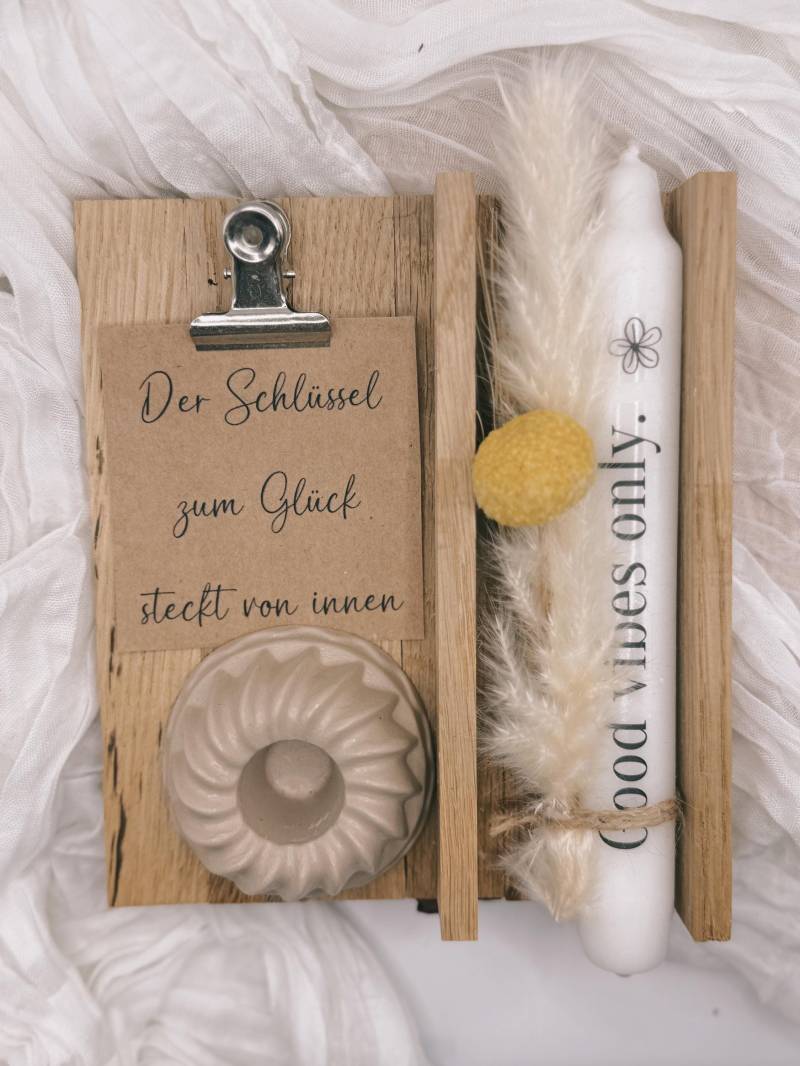 Der Schlüssel
zum Glück
steckt von innen
Good vibes only.